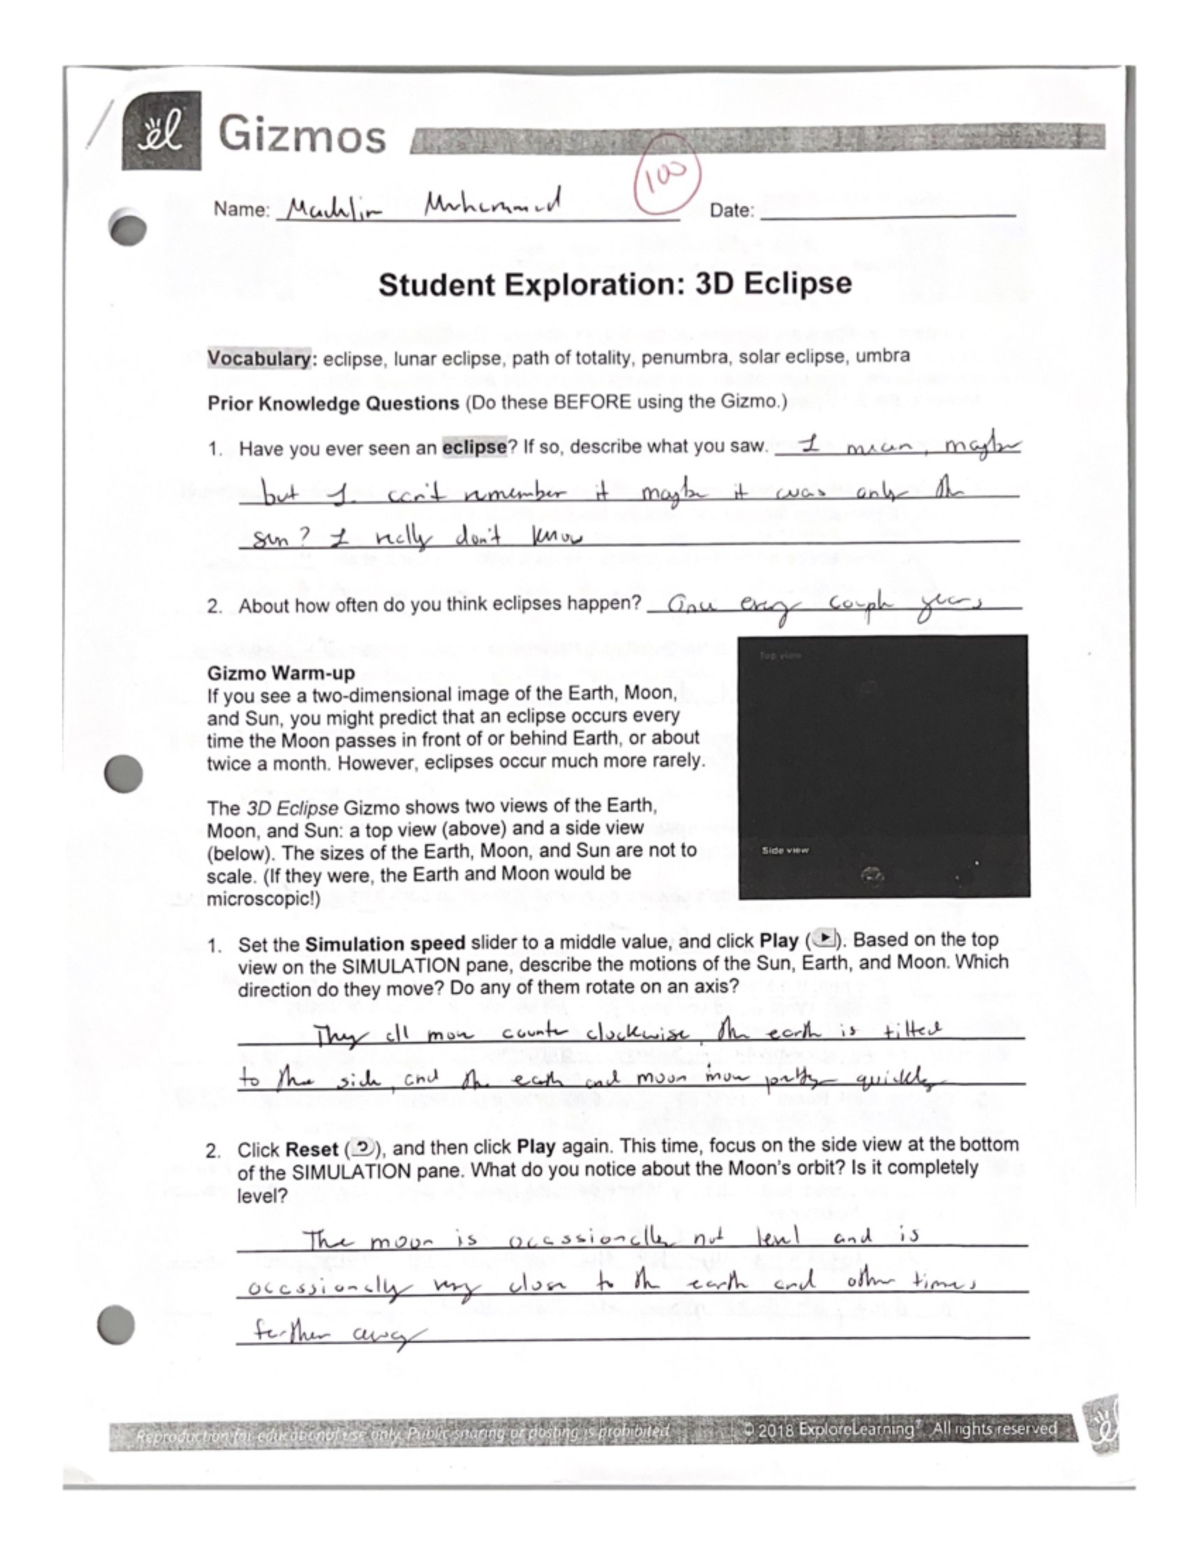 el Gizmos
100
Name: Muhammad Date:
Student Exploration: 3D Eclipse
Vocabulary: eclipse, lunar eclipse, path of totality, penumbra, solar eclipse, umbra
Prior Knowledge Questions (Do these BEFORE using the Gizmo.)
1. Have you ever seen an eclipse? If so, describe what you saw. I mean, maybe
but I can't remember it maybe it was only the
sun? I really don't know
2. About how often do you think eclipses happen? Once every couple years
Top view
Gizmo Warm-up
If you see a two-dimensional image of the Earth, Moon,
and Sun, you might predict that an eclipse occurs every
time the Moon passes in front of or behind Earth, or about
twice a month. However, eclipses occur much more rarely.
The 3D Eclipse Gizmo shows two views of the Earth,
Moon, and Sun: a top view (above) and a side view
(below). The sizes of the Earth, Moon, and Sun are not to
scale. (If they were, the Earth and Moon would be
microscopic!)
Side view
1. Set the Simulation speed slider to a middle value, and click Play (). Based on the top
view on the SIMULATION pane, describe the motions of the Sun, Earth, and Moon. Which
direction do they move? Do any of them rotate on an axis?
They all move counter clockwise, the earth is tilted
to the side, and the earth and moon move pretty quickly
2. Click Reset (), and then click Play again. This time, focus on the side view at the bottom
of the SIMULATION pane. What do you notice about the Moon's orbit? Is it completely
level?
The moon is occassionally not level and is
occassionally very close to the earth and other times
farther away
Reproduction for educational use only. Public sharing or posting is prohibited. © 2018 ExploreLearning® All rights reserved
el